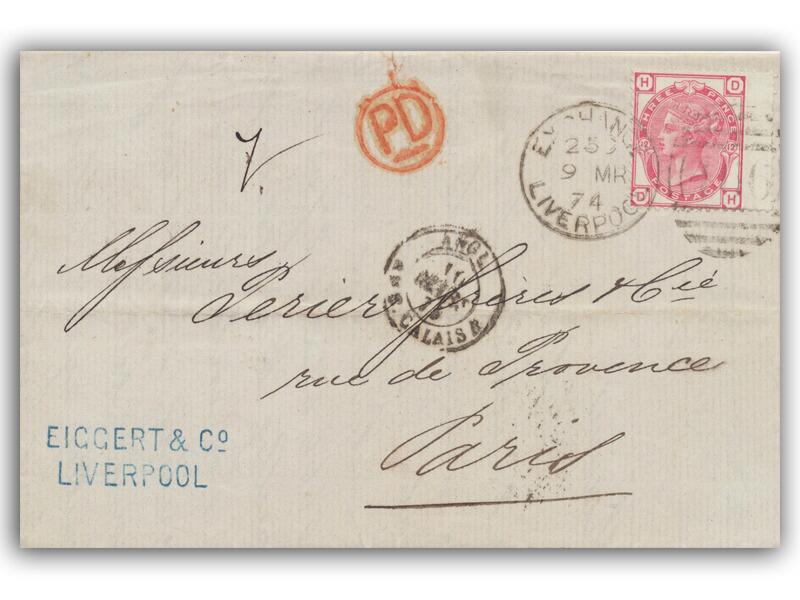 H D
THREE PENCE
12 12
POSTAGE
D H
PD
EXCHANGE
25
9 MR
74
LIVERPOOL
ANGL.
CALAIS
Messieurs
Perier frères & Cie
rue de Provence
Paris
EIGGERT & Co
LIVERPOOL